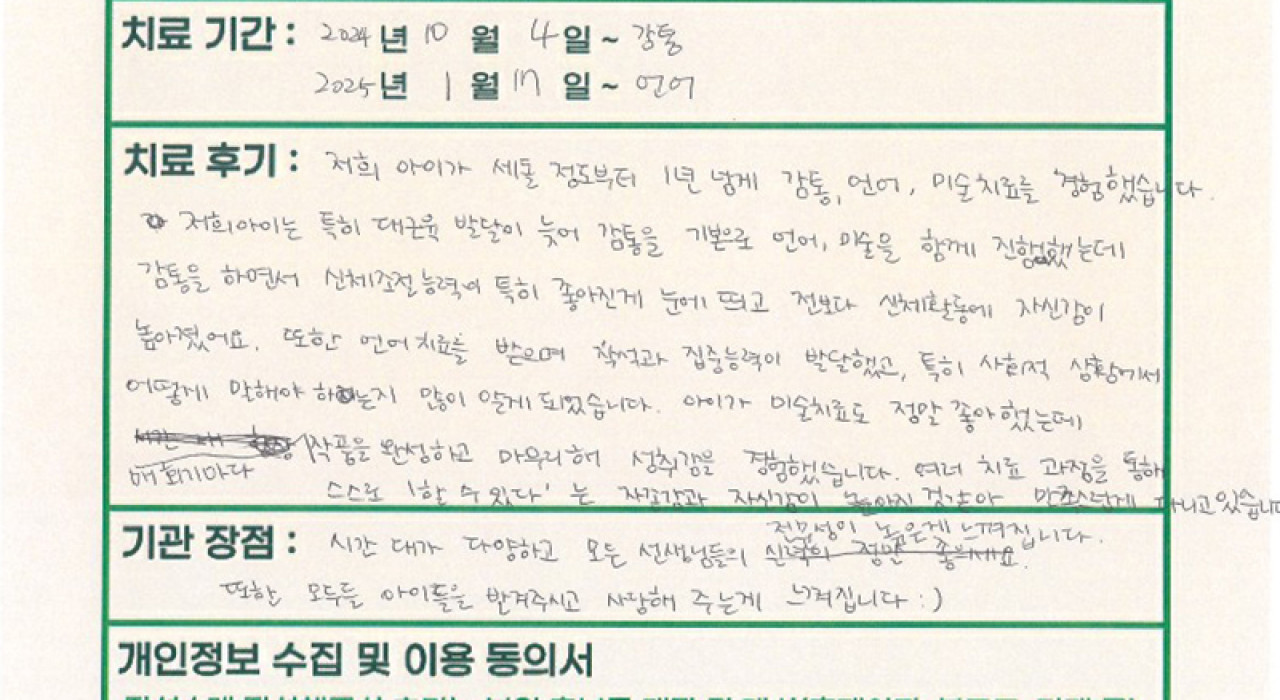 치료 기간 : 2024 년 10 월 4 일 ~ 감통
2025 년 1 월 17 일 ~ 언어
치료 후기 : 저희 아이가 세돌 정도부터 1년 넘게 감통, 언어, 미술치료를 경험했습니다.
저희아이는 특히 대근육 발달이 늦어 감통을 기본으로 언어, 미술을 함께 진행했는데
감통을 하면서 신체조절능력이 특히 좋아진게 눈에 띄고 전보다 신체활동에 자신감이
높아졌어요. 또한 언어치료를 받으며 착석과 집중능력이 발달했고, 특히 사회적 상황에서
어떻게 말해야 하는지 많이 알게 되었습니다. 아이가 미술치료도 정말 좋아했는데
매 회기마다 작품을 완성하고 마무리해 성취감을 경험했습니다. 여러 치료 과정을 통해
스스로 '할 수 있다' 는 자긍감과 자신감이 높아진 것같아 만족스럽게 다니고있습니다
기관 장점 : 시간 대가 다양하고 모든 선생님들의 전문성이 높은게 느껴집니다.
또한 모두들 아이들을 반겨주시고 사랑해 주는게 느껴집니다 :)
개인정보 수집 및 이용 동의서